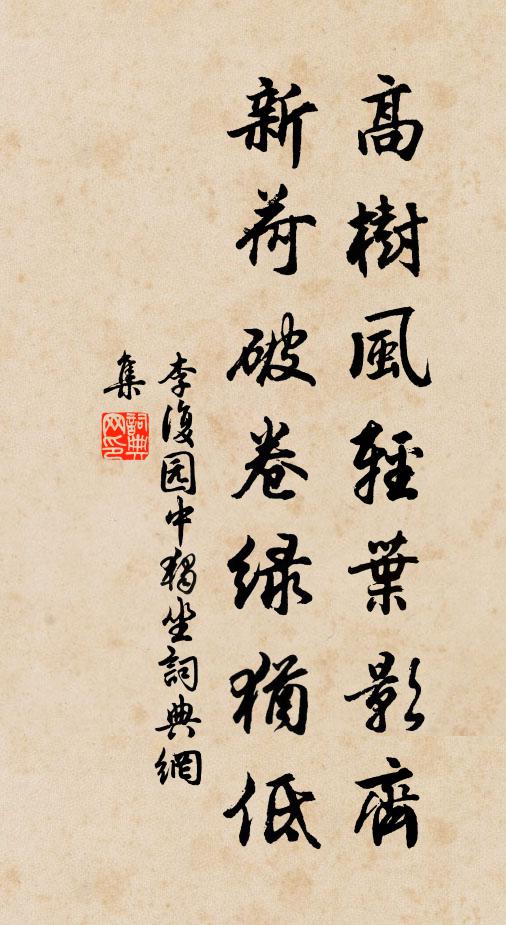 高樹風輕葉影齊
新荷破卷緑猶低
李復园中獨坐詞典網
集
詞典网印